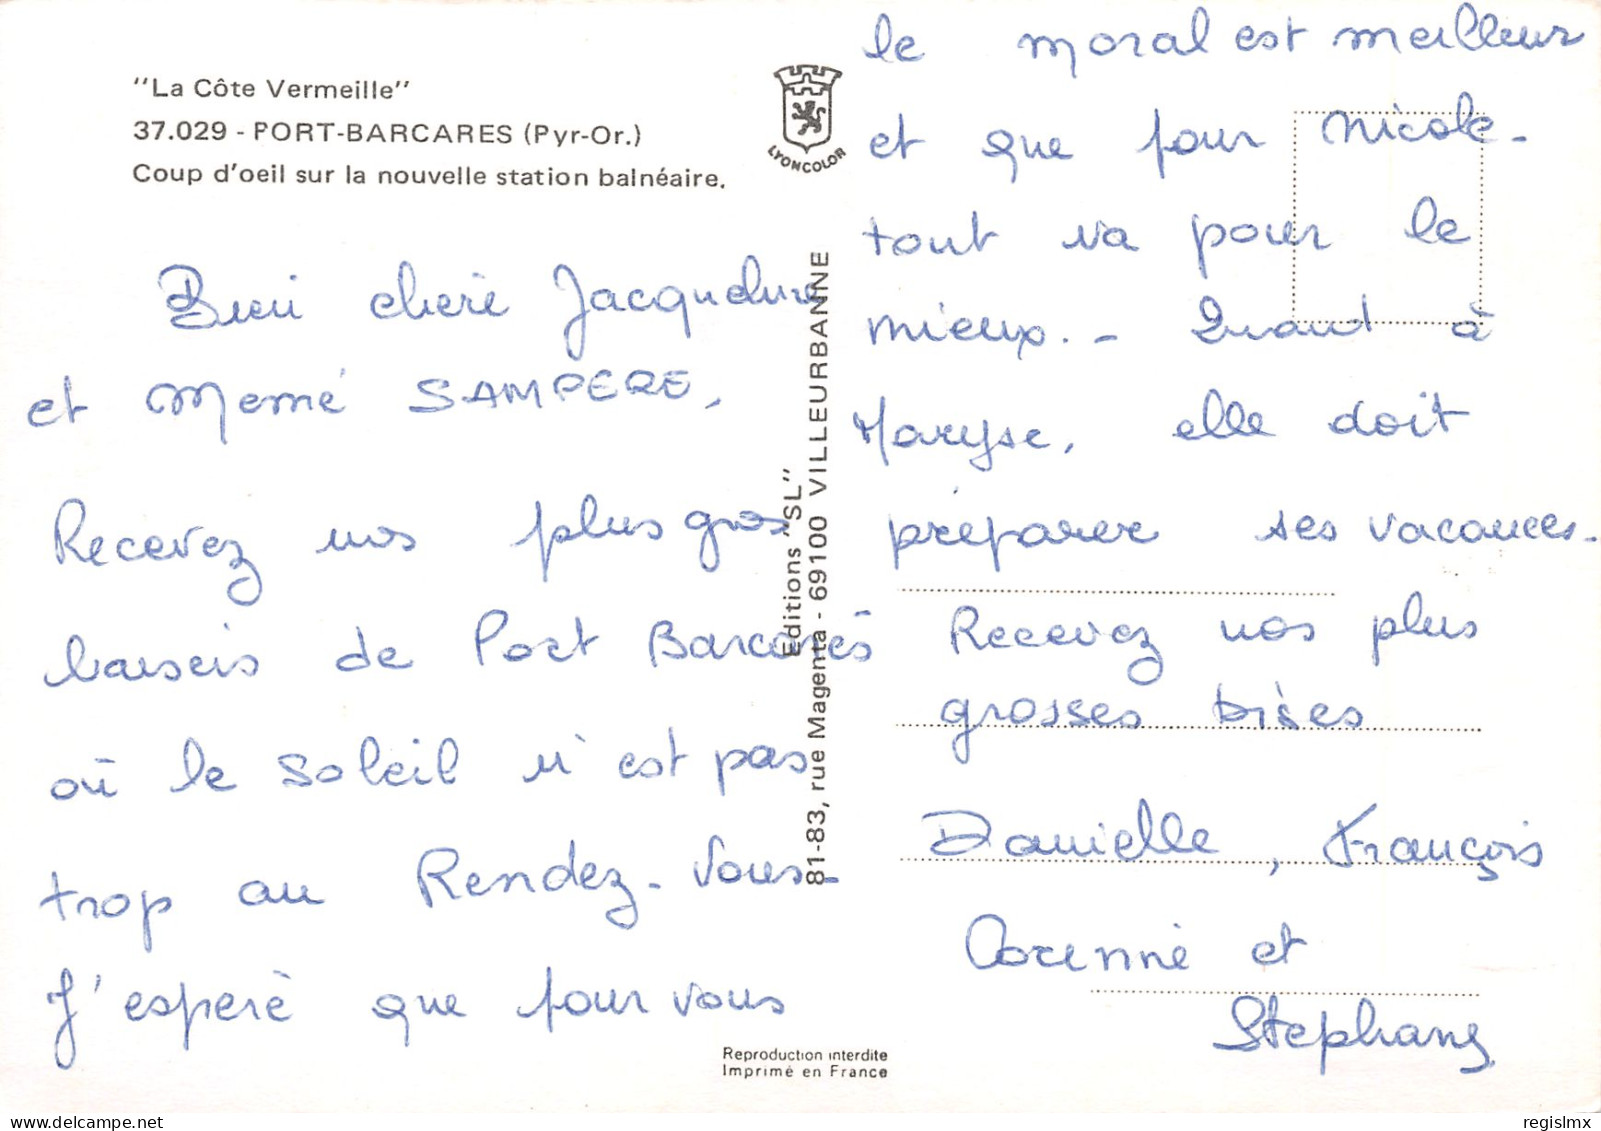 "La Côte Vermeille"
37.029 - PORT-BARCARES (Pyr-Or.)
Coup d'oeil sur la nouvelle station balnéaire.
LYONCOLOR
Bien chere Jacqueline
et Memé SAMPERE,
Recevez nos plus gros
baisers de Port Barcarès
où le soleil n'est pas
trop au Rendez-Vous-
J'espère que pour vous
Editions "SL"
81-83, rue Magenta - 69100 VILLEURBANNE
le moral est meilleur
et que pour Nicole-
tout va pour le
mieux.- Quand à
Maryse, elle doit
préparer ses vacances.
Recevez nos plus
grosses bises
Danielle, François
Corinne et
Stephane
Reproduction interdite
Imprimé en France
regislmx